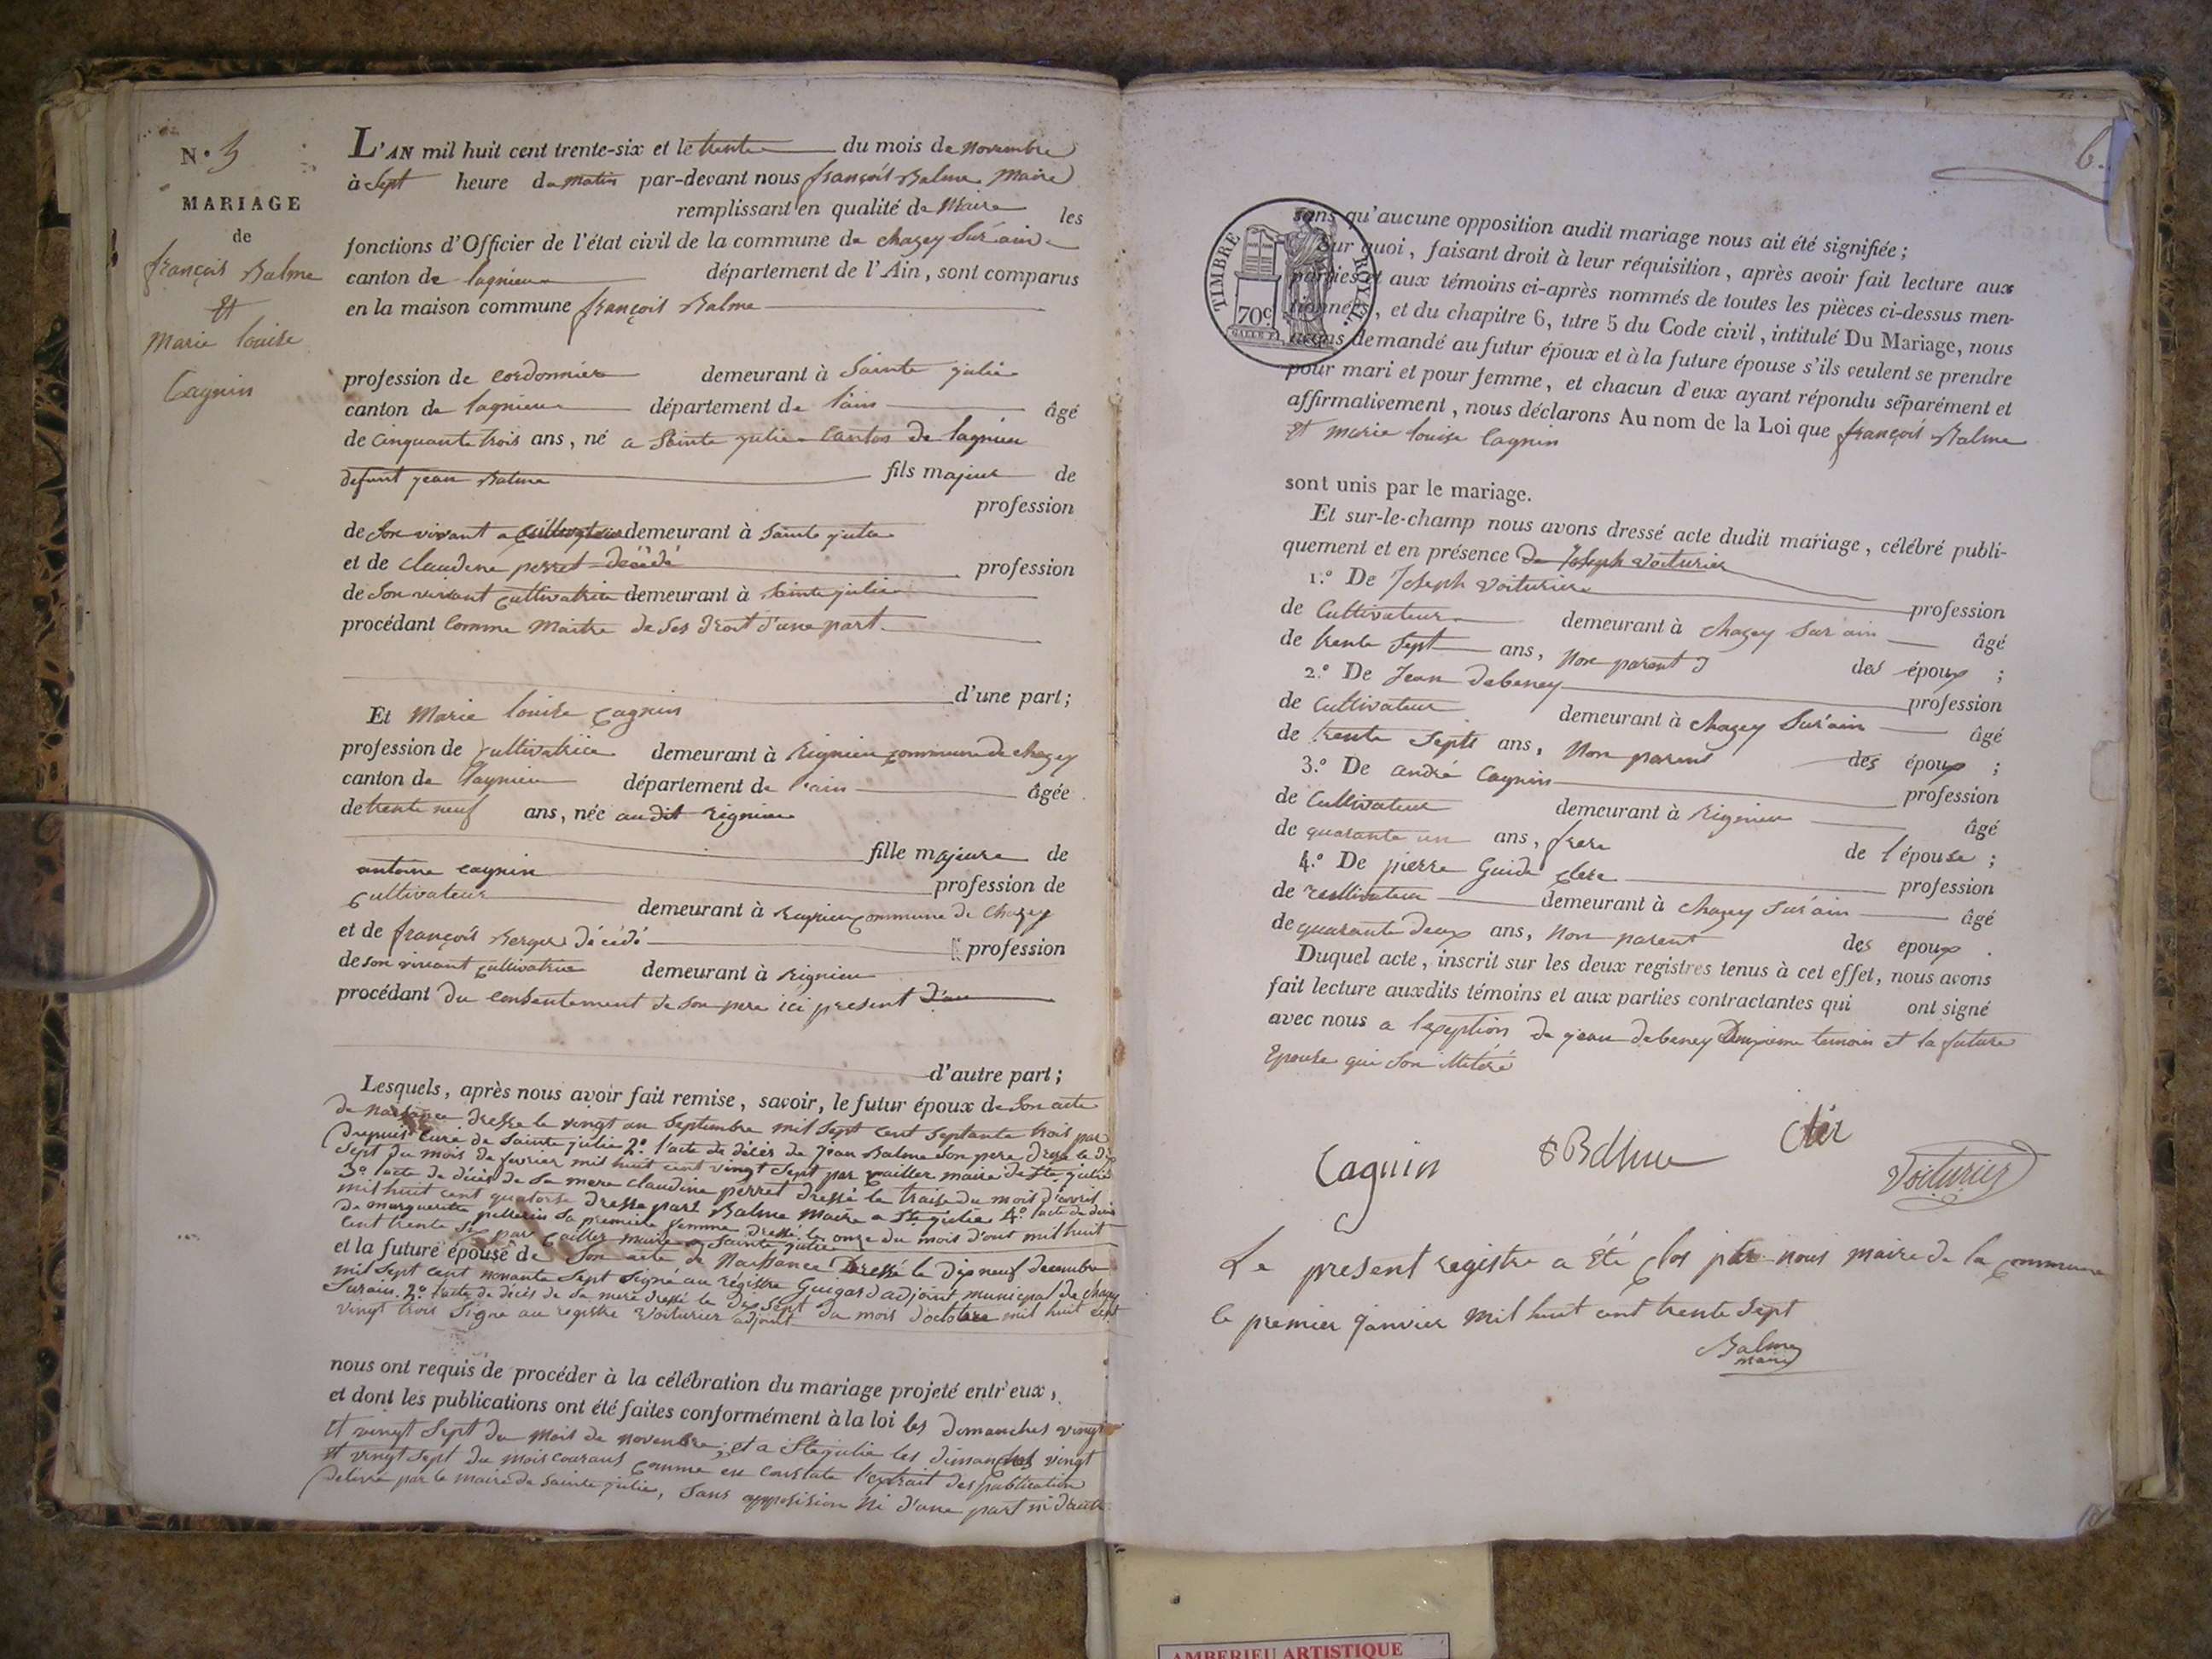 N.° 5
MARIAGE
de
françois Balme
Et
Marie louise
Cagnin
L'AN mil huit cent trente-six et le trente du mois de novembre
à Sept heure du matin par-devant nous françois Balme Maire
remplissant en qualité de Maire les
fonctions d'Officier de l'état civil de la commune de chazey Sur ain
canton de lagnieu département de l'Ain, sont comparus
en la maison commune françois Balme
profession de cordonnier demeurant à Sainte julie
canton de lagnieu département de l'ain âgé
de cinquante trois ans, né a Sainte julie Canton de lagnieu
defunt jean Balme fils majeur de
profession
de Son vivant a cultivateur demeurant à Sainte julie
et de claudine perret décédé profession
de Son vivant cultivatrice demeurant à Sainte julie
procédant Comme Maitre de Ses droit d'une part
d'une part;
Et Marie louise Cagnin
profession de cultivatrice demeurant à Rignieu commune de chazey
canton de lagnieu département de l'ain âgée
de trente neuf ans, née audit Rignieu
fille majeure de
antoine cagnin profession de
cultivateur demeurant à Rignieu commune de Chazey
et de françois Berger décédé profession
de son vivant cultivatrice demeurant à Rignieu
procédant du consentement de Son pere ici present d'une
d'autre part;
Lesquels, après nous avoir fait remise, savoir, le futur époux de Son acte
de naissance dressé le vingt un Septembre mil Sept cent Septante trois par
Dupuis Curé de Sainte julie 2.° l'acte de décès de jean Balme Son pere dressé le dix
Sept du mois de fevrier mil huit cent vingt Sept par cailler maire de Ste julie
3.° l'acte de décès de Sa mere claudine perret dressé le traise du mois d'avril
mil huit cent quatorse dressé part Balme Maire a Ste julie 4.° l'acte de décès
de marguerite pellerin Sa première femme dressé le onze du mois d'out mil huit
cent trente Six par Cailler maire a Sainte julie
et la future épouse de Son acte de Naissance Dressé le dix neuf decembre
mil Sept cent nonante Sept Signé au régistre Guigard adjoint municipal de chazey
Surain. 2.° l'acte de décès de Sa mere dressé le dix Sept du mois d'octobre mil huit cent
vingt trois Signé au registre Voiturier adjoint
nous ont requis de procéder à la célébration du mariage projeté entr'eux,
et dont les publications ont été faites conformément à la loi les dimanches vingt
et vingt Sept du mois de novembre, et a Ste julie les dimanches vingt
et vingt Sept du mois courans comme en constate l'extrait des publication
delivré par le maire de Sainte julie, Sans opposision ni d'une part ni d'autre
6.
TIMBRE ROYAL.
70c.
sans qu'aucune opposition audit mariage nous ait été signifiée;
Sur quoi, faisant droit à leur réquisition, après avoir fait lecture aux
parties et aux témoins ci-après nommés de toutes les pièces ci-dessus men-
tionnées, et du chapitre 6, titre 5 du Code civil, intitulé Du Mariage, nous
avons demandé au futur époux et à la future épouse s'ils veulent se prendre
pour mari et pour femme, et chacun d'eux ayant répondu séparément et
affirmativement, nous déclarons Au nom de la Loi que françois Balme
Et Marie louise Cagnin
sont unis par le mariage.
Et sur-le-champ nous avons dressé acte dudit mariage, célébré publi-
quement et en présence De Joseph Voiturier
1.° De Joseph Voiturier profession
de Cultivateur demeurant à chazey Sur ain âgé
de trente Sept ans, Non parent des époux ;
2.° De Jean Debeney profession
de Cultivateur demeurant à chazey Sur ain âgé
de trente Septs ans, Non parens des époux ;
3.° De andré Cagnin profession
de Cultivateur demeurant à Rignieu âgé
de quarante un ans, frere de l'épouse ;
4.° De pierre Guide Clere profession
de Cultivateur demeurant à chazey Sur ain âgé
de quarante deux ans, Non parent des epoux .
Duquel acte, inscrit sur les deux registres tenus à cet effet, nous avons
fait lecture auxdits témoins et aux parties contractantes qui ont signé
avec nous a l'exeption de jean debeney Deuxieme temoin et la future
Epouse qui Son illiteré
Cagnin
Balme
Clér
Voiturier
Le present registre a été clos par nous maire de la commune
le premier janvier mil huit cent trente Sept
Balme
maire
AMBERIEU ARTISTIQUE